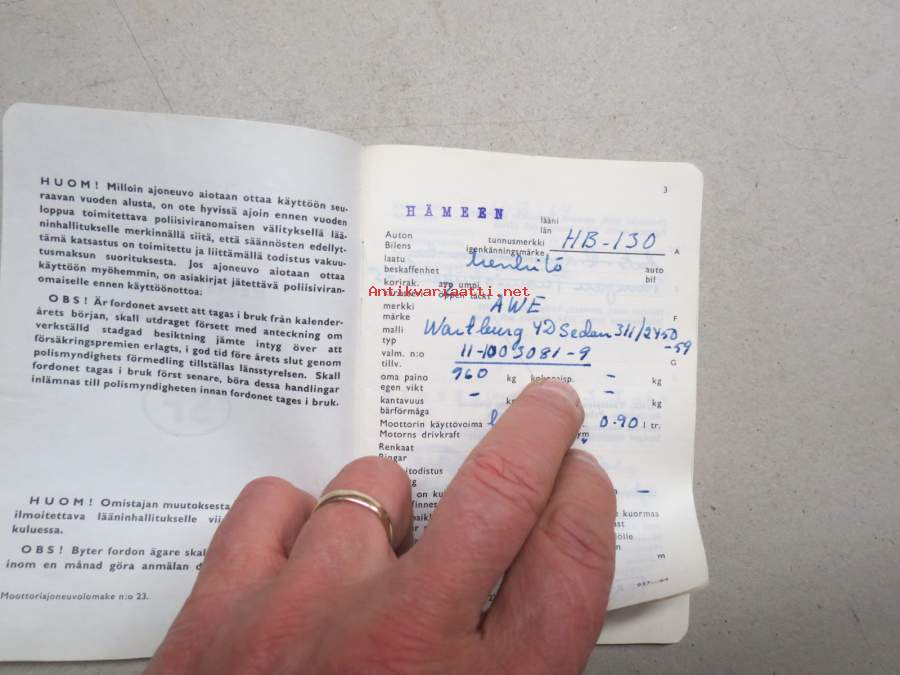 HUOM! Milloin ajoneuvo aiotaan ottaa käyttöön seu-
raavan vuoden alusta, on ote hyvissä ajoin ennen vuoden
loppua toimitettava poliisiviranomaisen välityksellä lää-
ninhallitukselle merkinnällä siitä, että säännösten edellyt-
tämä katsastus on toimitettu ja liittämällä todistus vakuu-
tusmaksun suorituksesta. Jos ajoneuvo aiotaan ottaa
käyttöön myöhemmin, on asiakirjat jätettävä poliisiviran-
omaiselle ennen käyttöönottoa:
OBS! Är fordonet avsett att tagas i bruk från kalender-
årets början, skall utdraget försett med anteckning om
verkställd stadgad besiktning jämte intyg över att
försäkringspremien erlagts, i god tid före årets slut genom
polismyndighets förmedling tillställas länsstyrelsen. Skall
fordonet tagas i bruk först senare, böra dessa handlingar
inlämnas till polismyndigheten innan fordonet tages i bruk.
HUOM! Omistajan muutoksesta
ilmoitettava lääninhallitukselle
kuluessa.
OBS! Byter fordon ägare
inom en månad göra anmälan
Moottoriajoneuvolomake n:o 23.
3
HÄMEEN lääni
län
Auton tunnusmerkki HB-130 A
Bilens igenkänningsmärke
laatu auto
beskaffenhet bil
korirak. avp umpi
öppen täckt
Antikvariaatti.net
merkki AWE F
märke
malli Wartburg 4D Sedan 311/2450
typ -59
valm. n:o 11-1003081-9 G
tillv.
oma paino 960 kg - kg
egen vikt
kantavuus - - kg
bärförmåga
Moottorin käyttövoima 0.90 l tr.
Motorns drivkraft
Renkaat
Ringar
kuormaa
m